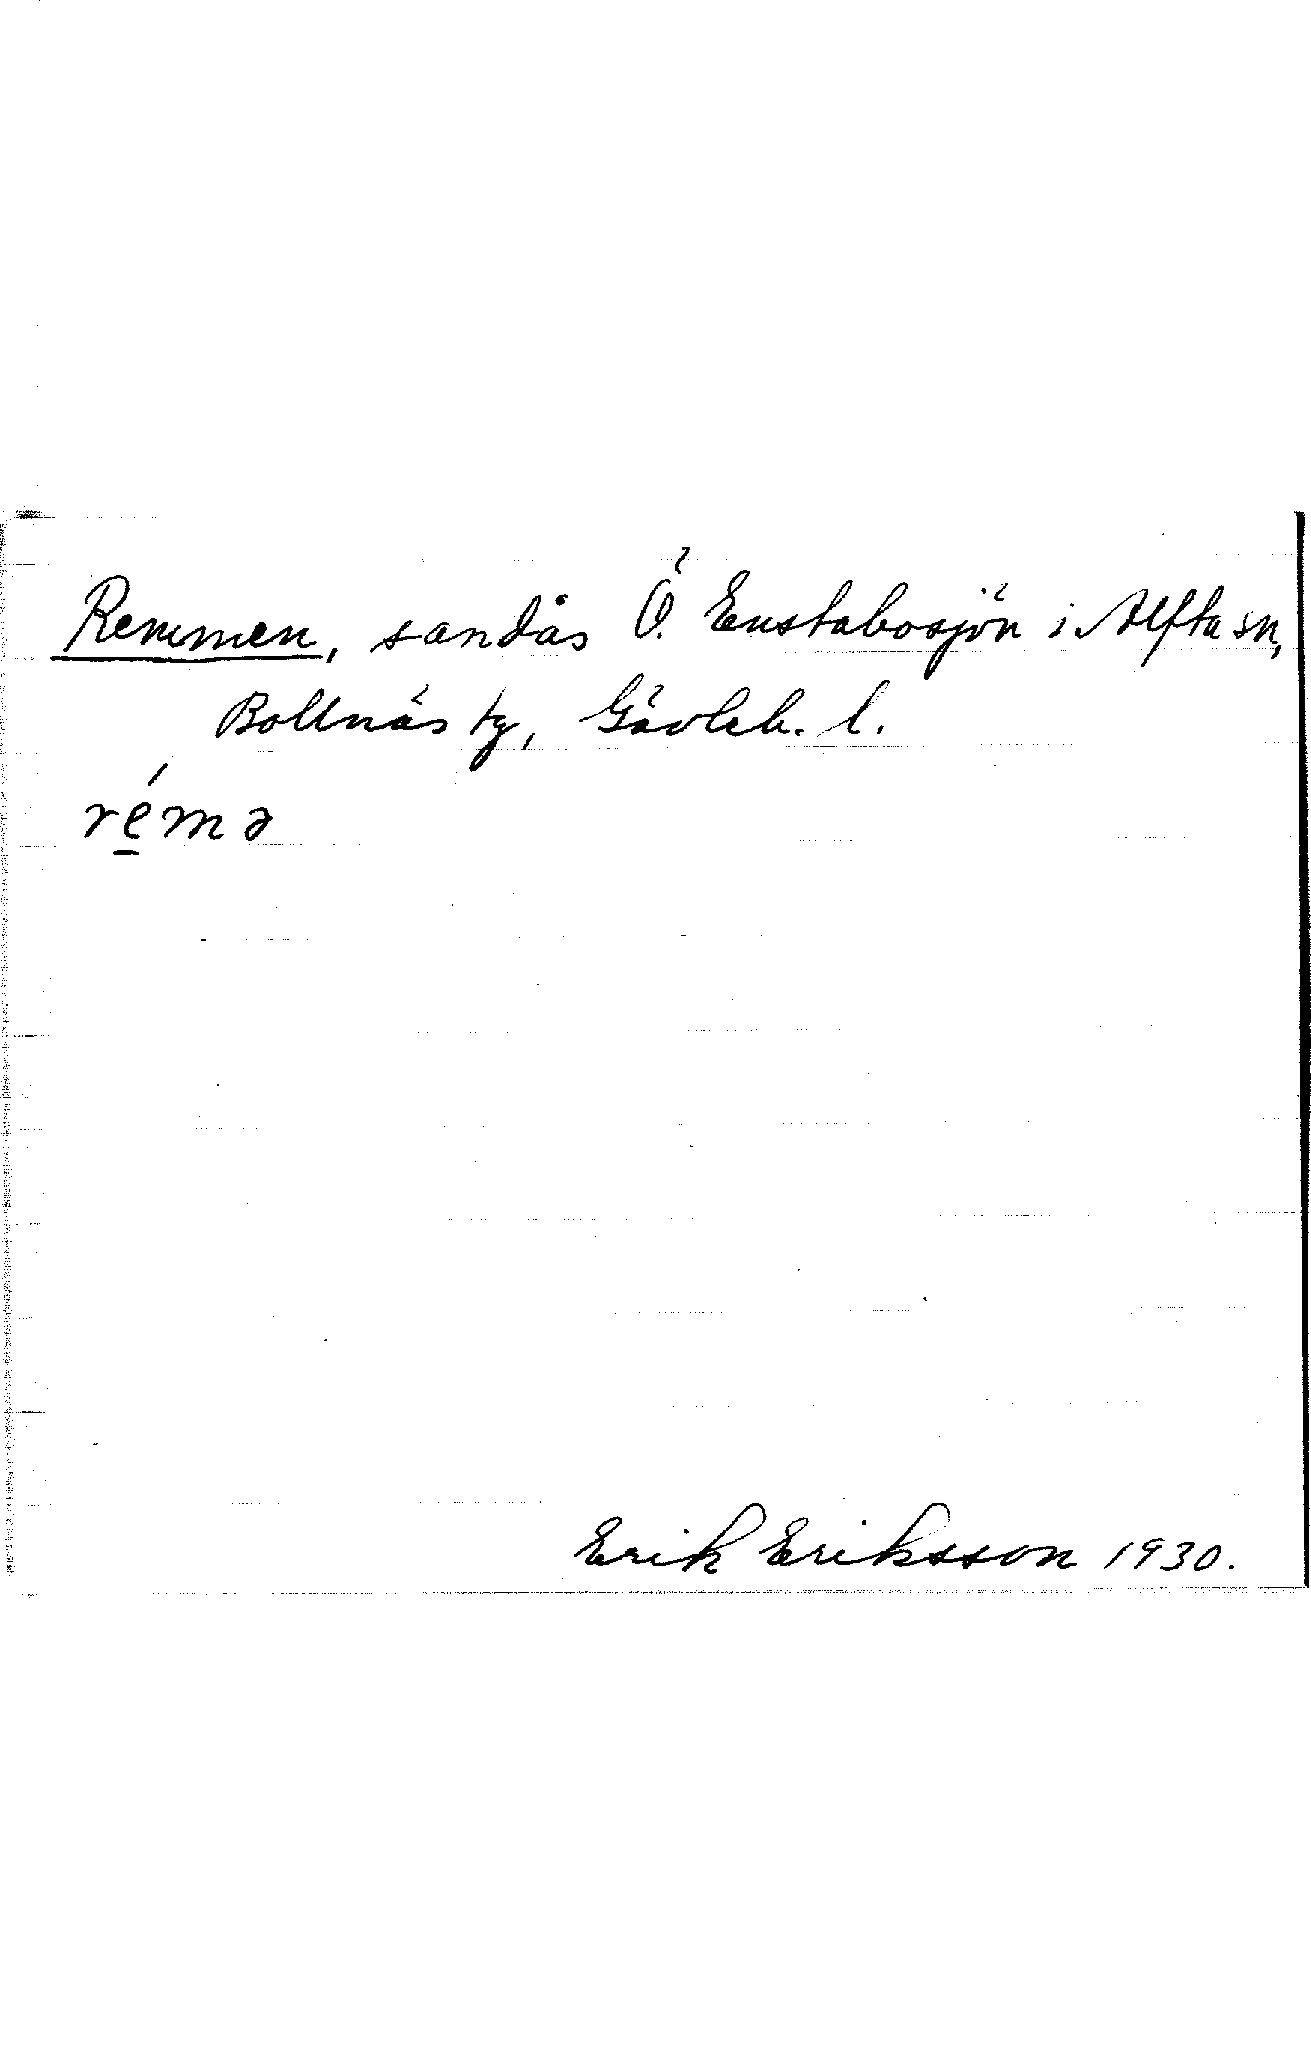 Remmen, sandås Ö. Eustabosjön i Alfta sn,
Bollnäs tg, Gävleb. l.
rémə
Erik Eriksson 1930.